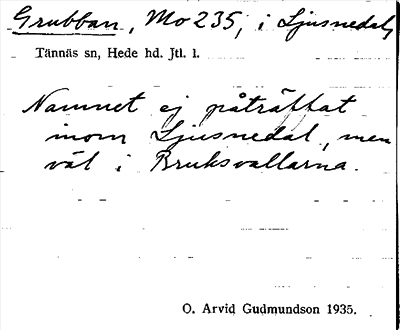 Grubban, Mo 235, i Ljusnedal,
Tännäs sn, Hede hd. Jtl. l.
Namnet ej påträffat
inom Ljusnedal, men
väl i Bruksvallarna.
O. Arvid Gudmundson 1935.